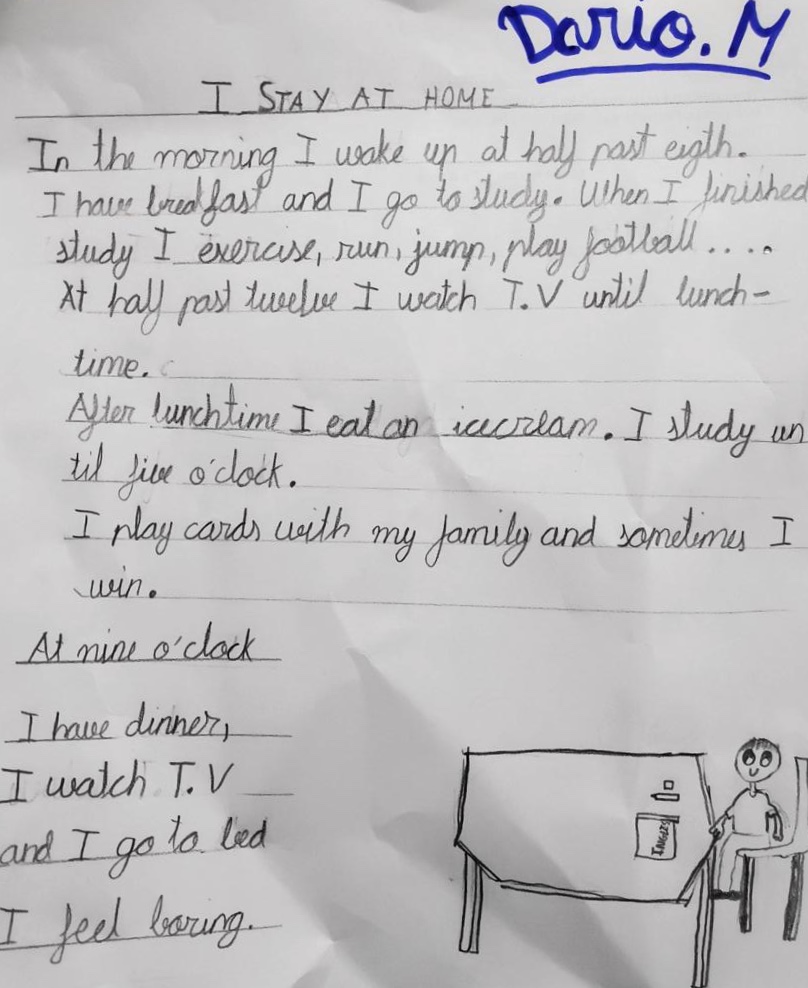 Dario. M
I STAY AT HOME
In the morning I wake up at half past eigth.
I have bredfast and I go to study. When I finished
study I exercise, run, jump, play football....
At half past twelve I watch T.V until lunch-
time.
After lunchtime I eat an icecream. I study un
til five o'clock.
I play cards with my family and sometimes I
win.
At nine o'clock
I have dinner,
I watch T.V
and I go to bed
I feel boring.
INGLES